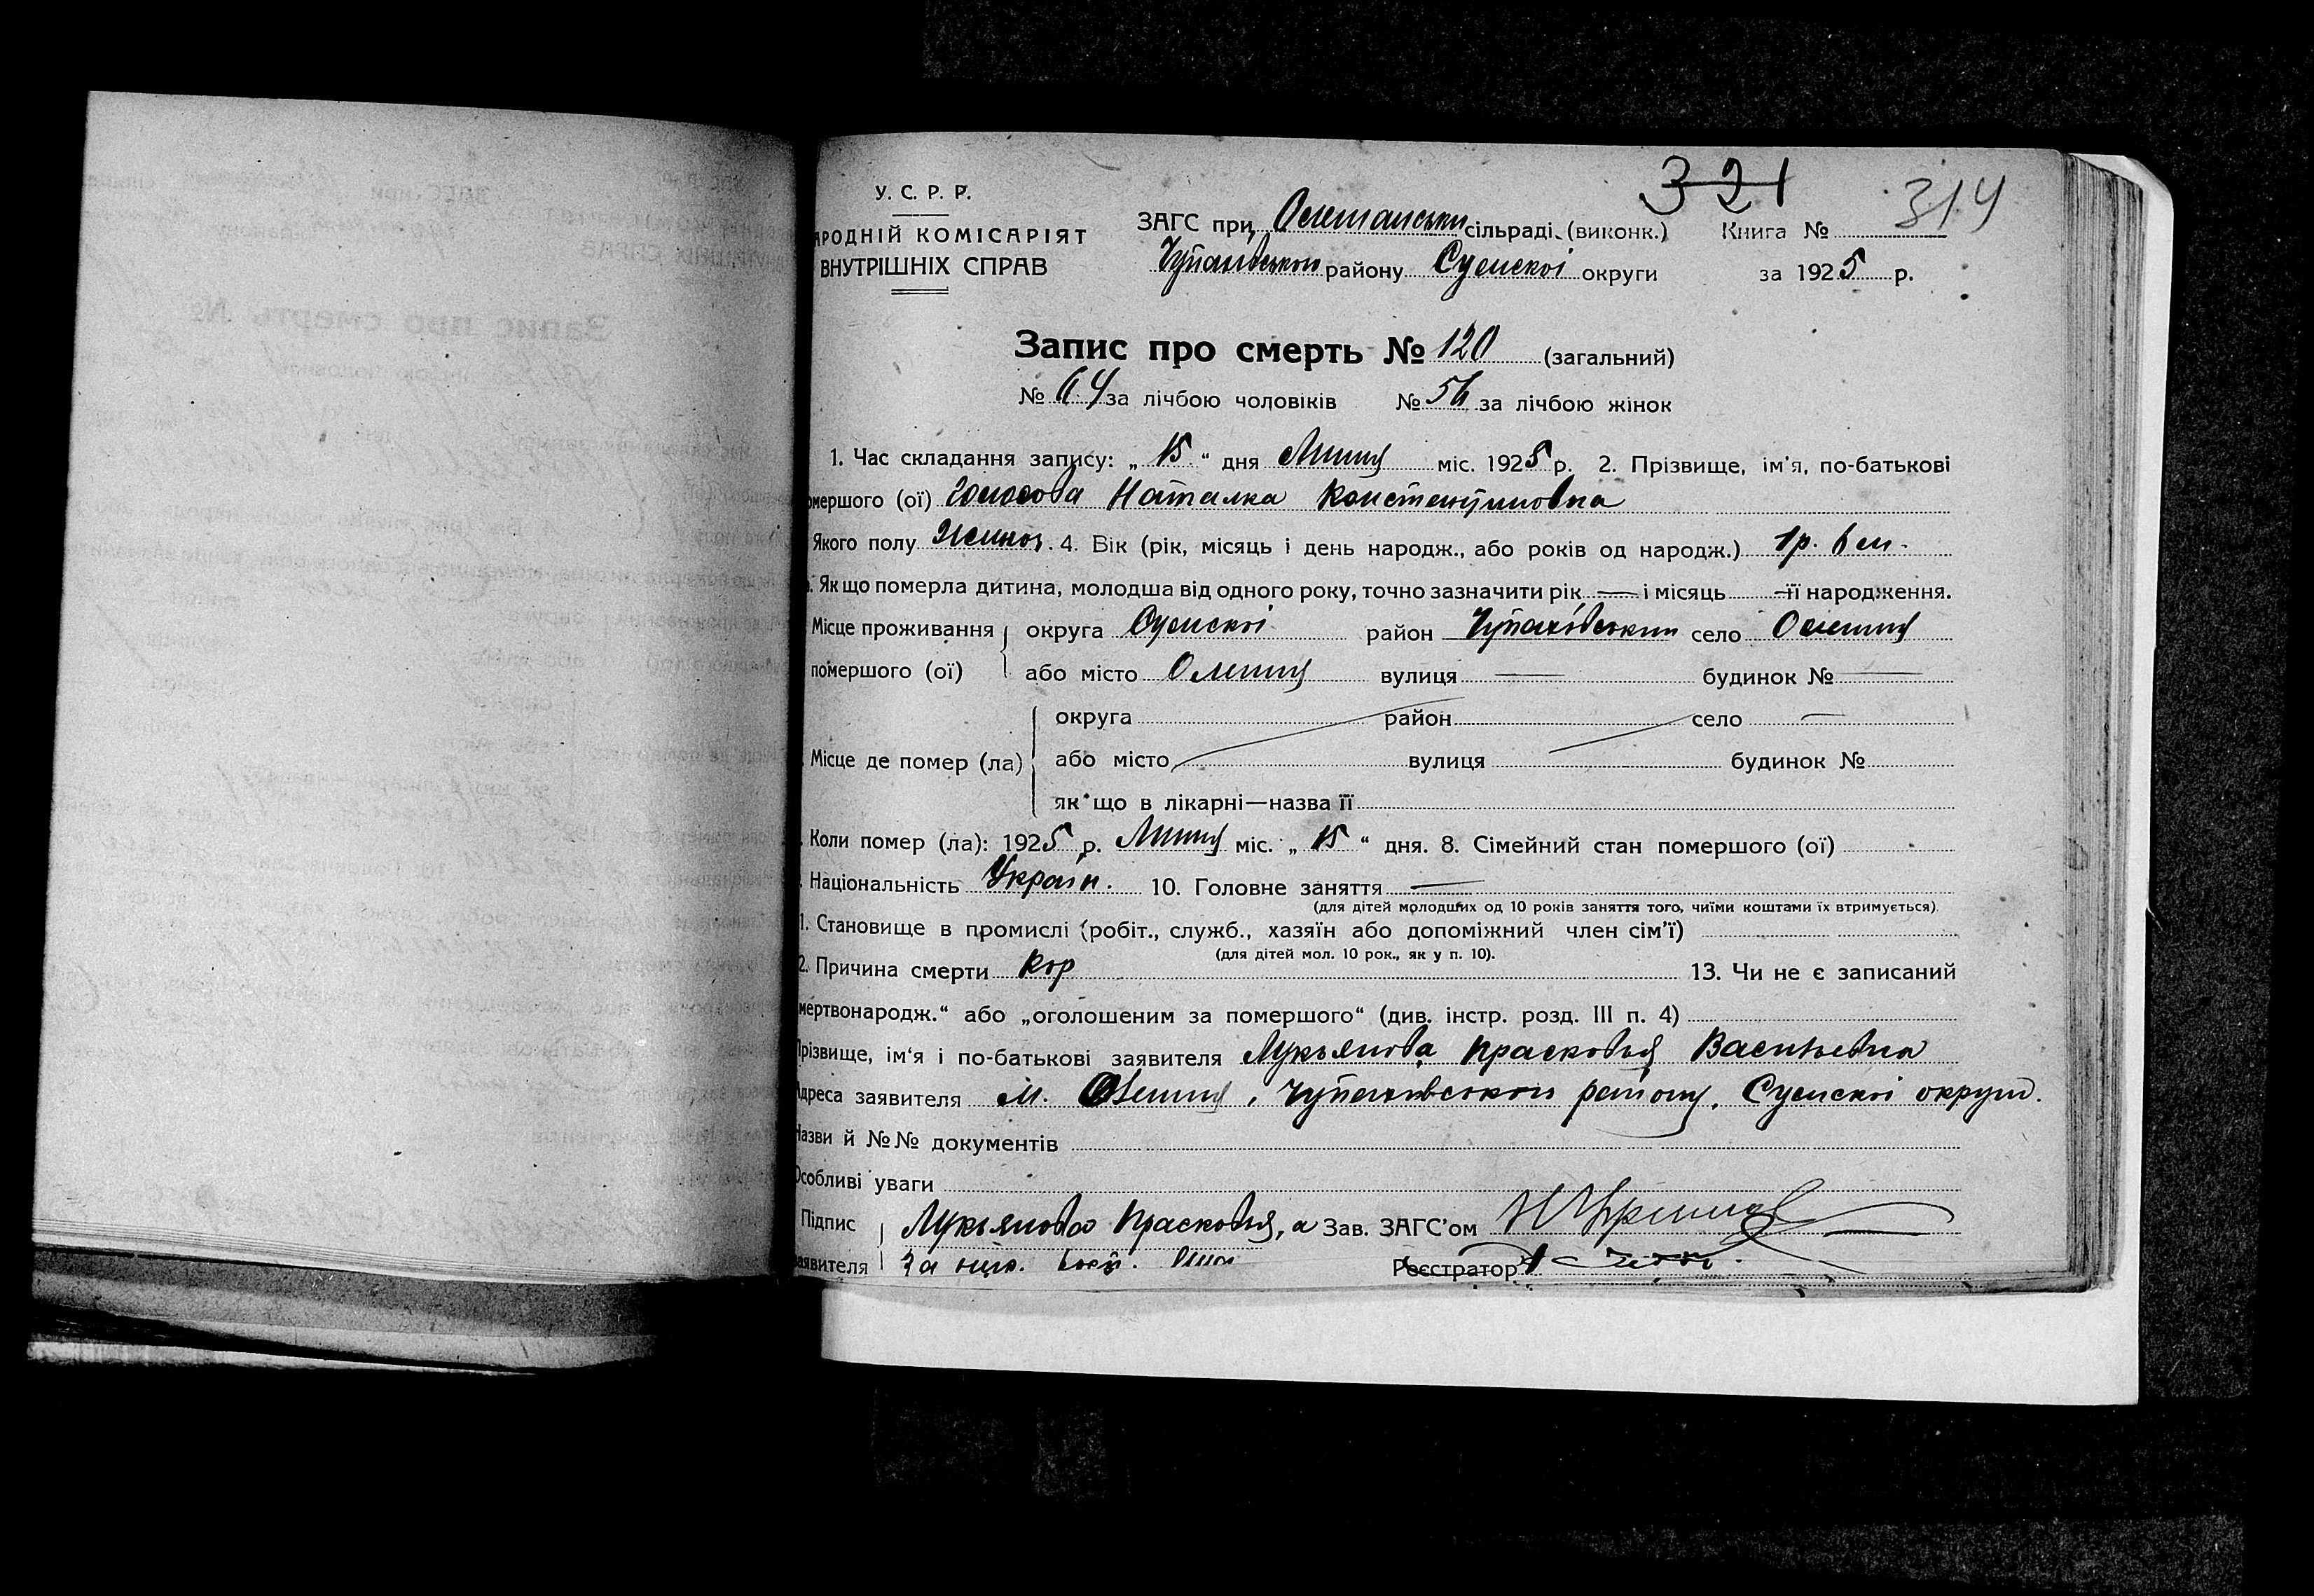 321
314
У. С. Р. Р.
АРОДНІЙ КОМІСАРІЯТ
ВНУТРІШНІХ СПРАВ
ЗАГС при сільраді (виконк.) Книга №
району Сумскоі округи за 1925 р.
Запис про смерть № 120 (загальний)
№ 64 за лічбою чоловіків № 56 за лічбою жінок
1. Час складання запису: „ 15 “ дня Липня міс. 1925 р. 2. Прізвище, ім'я, по-батькові
омершого (ої) Голосова Наталка Константиновна
Якого полу Жиноч. 4. Вік (рік, місяць і день народж., або років од народж.) 1 р. 6 м.
Як що померла дитина, молодша від одного року, точно зазначити рік — і місяць — її народження.
Місце проживання округа Сумскоі район село Олешня
помершого (ої) або місто Олешня вулиця — будинок № —
округа район село —
Місце де помер (ла) або місто вулиця будинок №
як що в лікарні—назва її
Коли помер (ла): 1925 р. Липня міс. „ 15 “ дня. 8. Сімейний стан помершого (ої)
Національність Украін. 10. Головне заняття —
(для дітей молодших од 10 років заняття того, чиїми коштами їх втримується).
1. Становище в промислі (робіт., служб., хазяїн або допоміжний член сім'ї)
(для дітей мол. 10 рок., як у п. 10).
2. Причина смерти Кор 13. Чи не є записаний
мертвонародж.“ або „оголошеним за помершого“ (див. інстр. розд. III п. 4)
Прізвище, ім'я і по-батькові заявителя Лукьянова Прасковья Васильевна
Адреса заявителя м. Олешня, району, Сумскоі округи.
Назви й №№ документів
Особливі уваги
Підпис Лукьянова Прасковья, а Зав. ЗАГС'ом
аявителя За Реєстратор